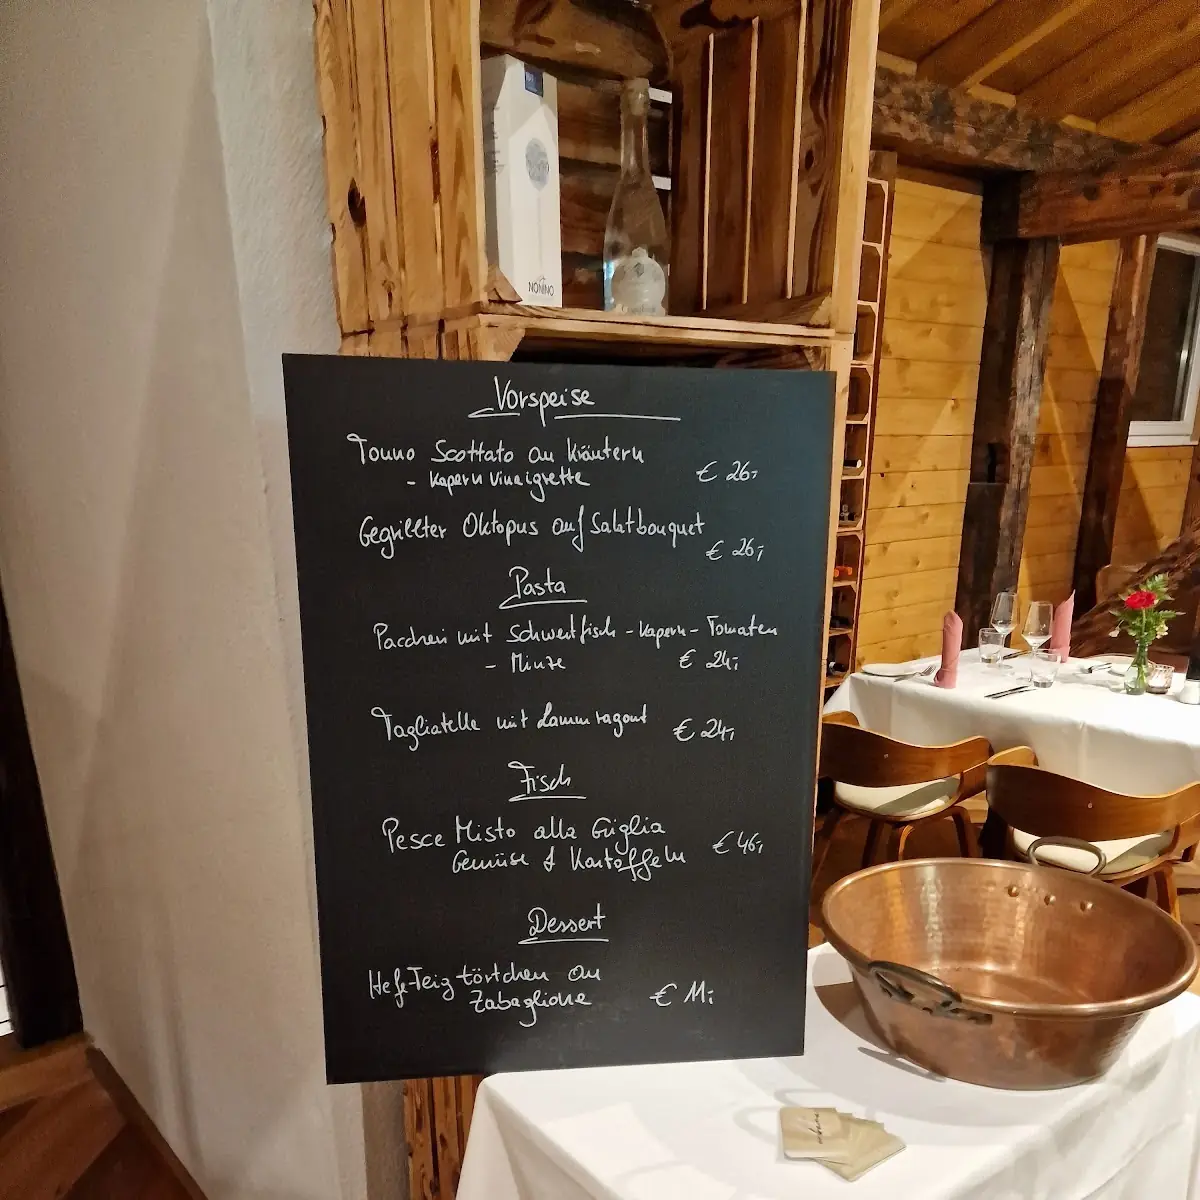 NONINO
Vorspeise
Tonno Scottato an Kräutern
- Kapern Vinaigrette
€ 26,-
Gegrillter Oktopus auf Salatbouquet
€ 26,-
Pasta
Paccheri mit Schwertfisch - Kapern - Tomaten
- Minze € 24,-
Tagliatelle mit Lammragout € 24,-
Fisch
Pesce Misto alla Griglia
€ 46,-
Gemüse & Kartoffeln
Dessert
Hefe-Teigtörtchen an
Zabaglione € 11,-